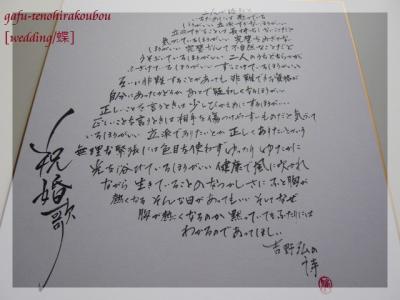 gafu-tenohirakoubou
[wedding/蝶]
二人が睦まじく
いるためには愚かでいる
ほうがいい 立派すぎないほうがいい
立派すぎることは長持ちしないことだと
気付いているほうがいい 完璧をめざさない
ほうがいい 完璧なんて不自然なことだと
うそぶいているほうがいい 二人のうちどちらかが
ふざけているほうがいい ずっこけているほうがいい
互いに非難することがあっても 非難できる資格が
自分にあったかどうか あとで疑わしくなるほうがいい
正しいことを言うときは 少しひかえめにするほうがいい
正しいことを言うときは 相手を傷つけやすいものだと気付いて
いるほうがいい 立派でありたいとか 正しくありたいとかいう
無理な緊張には色目を使わず ゆったり ゆたかに
光を浴びているほうがいい 健康で風に吹かれ
ながら 生きていることのなつかしさに ふと胸が
熱くなる そんな日があってもいい そしてなぜ
胸が熱くなるのか 黙っていてもふたりには
わかるのであってほしい
吉野弘の
詩
祝婚歌